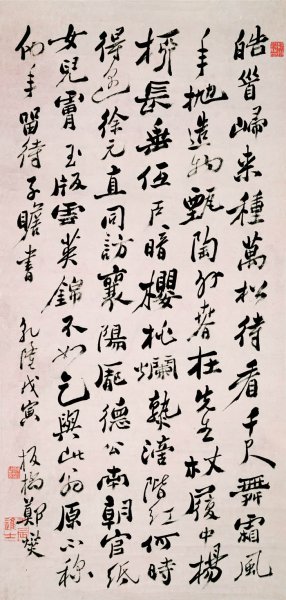 皓首歸来種萬松待看千尺舞霜風
年抛造物甄陶外春在先生杖屨中楊
柳長垂低户暗櫻桃爛熟滴階紅何時
得徐元直同訪襄陽龐德公南朝官紙
女兒膚玉版雲英錦不如乞與此翁原不稱
他年留待子瞻書 乾隆戊寅 板橋鄭燮